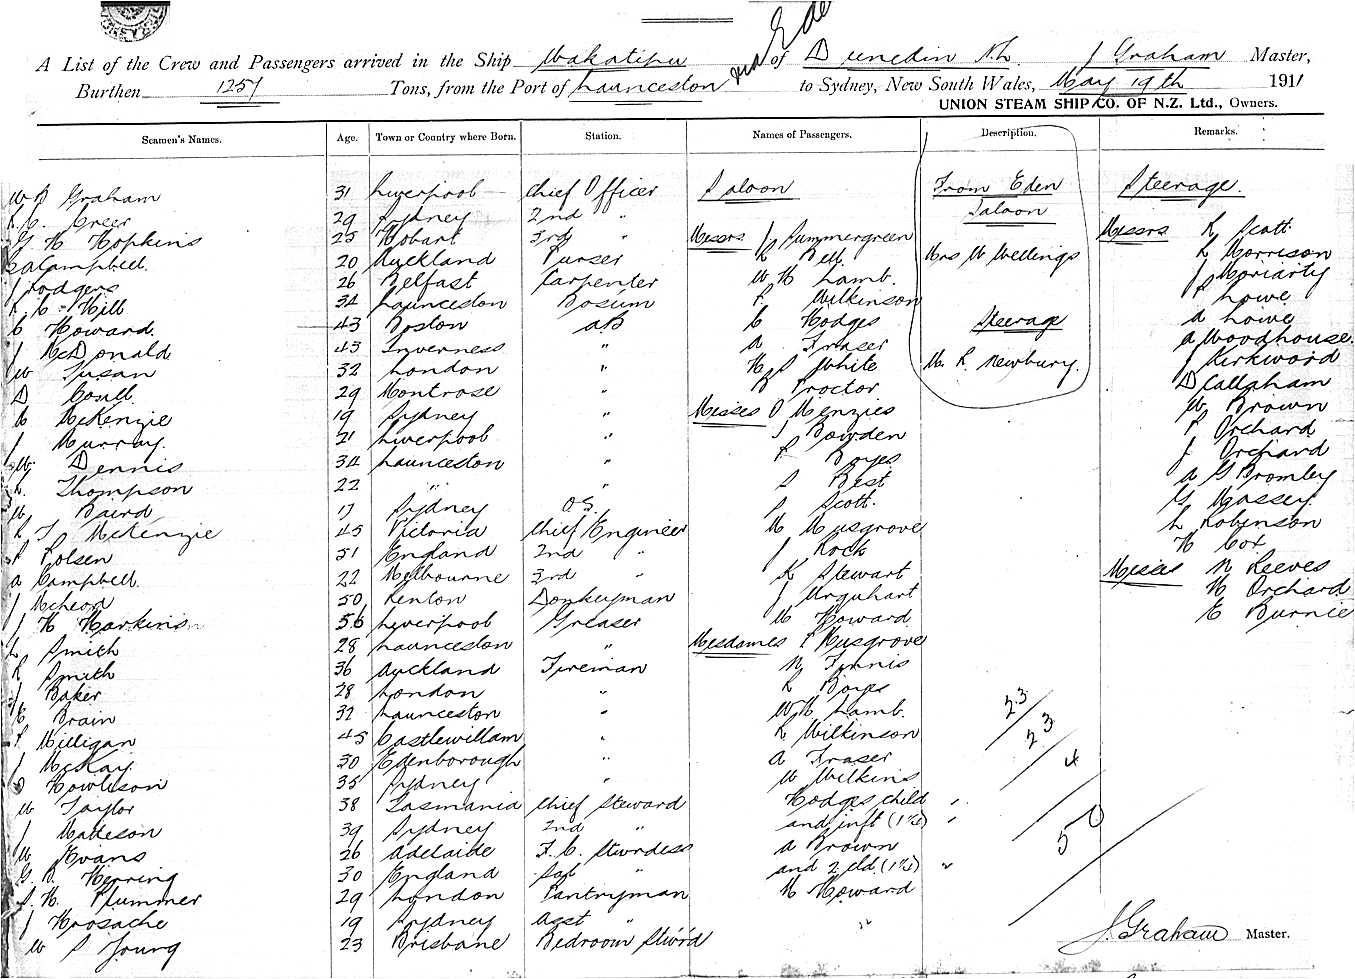 A List of the Crew and Passengers arrived in the Ship Wakatipu and Eden of Dunedin N.Z. J Graham Master,
Burthen 1257 Tons, from the Port of Launceston to Sydney, New South Wales, May 19th 1911
UNION STEAM SHIP CO. OF N.Z. Ltd., Owners.
Seamen's Names. Age. Town or Country where Born. Station. Names of Passengers. Description. Remarks.
Graham 31 Liverpool Chief Officer Saloon From Eden Steerage.
Greer 29 Sydney 2nd " Saloon
G H Hopkins 25 Hobart 3rd " Messrs J Summergreen Messrs R Scott
Campbell. 20 Auckland Purser Bell Mrs W Wellings L Morrison
J Rodgers 26 Belfast Carpenter W H Lamb. J Moriarty
Hill 34 Launceston Bosum Wilkinson Lowe
C Howard. 43 Boston AB C Hodges Steerage A Lowe
J McDonald 43 Inverness " A Fraser A Woodhouse.
W Susan 32 London " White M. R. Newbury. J Kirkwood
D Coull. 29 Montrose " Proctor D Callaham
McKenzie 19 Sydney " Misses O Menzies W Brown
J Murray. 21 Liverpool " Bowden Orchard
W Dennis 34 Launceston " Boyes J Orchard
Thompson 22 " " Best A G Bromley
W Baird 17 Sydney O.S. Scott. G Massey.
McKenzie 45 Victoria Chief Engineer M Musgrove L Robinson
Polsen 51 England 2nd " J Rock H Cox
A Campbell. 22 Melbourne 3rd " K Stewart Misses N Reeves
J McLeod 50 Renton Donkeyman J Urquhart H Orchard
J H Harkins 56 Liverpool Greaser M Howard E Burnie
Smith 28 Launceston " Mesdames Musgrove
R Smith 36 Auckland Fireman Finnis
J Baker 28 London " Boyes
E Brain 32 Launceston " W H Lamb. 23
Milligan 45 Castlewillam " Wilkinson 23
J McKay 30 Edenborough " A Fraser 4
Howieson 35 Sydney " W Wilkins
W Taylor 38 Tasmania Chief Steward Hodges child "
J Mateson 39 Sydney 2nd " and inft (1½) " 50
W Evans 26 Adelaide F. C. Stwrdess A Brown
G. B. Herring 30 England " and 2 cld. "
S. H. Plummer 29 London Pantryman H Howard
J Hrosache 19 Sydney Asst " "
W S Young 23 Brisbane Bedroom Stwrd
J. Graham Master.